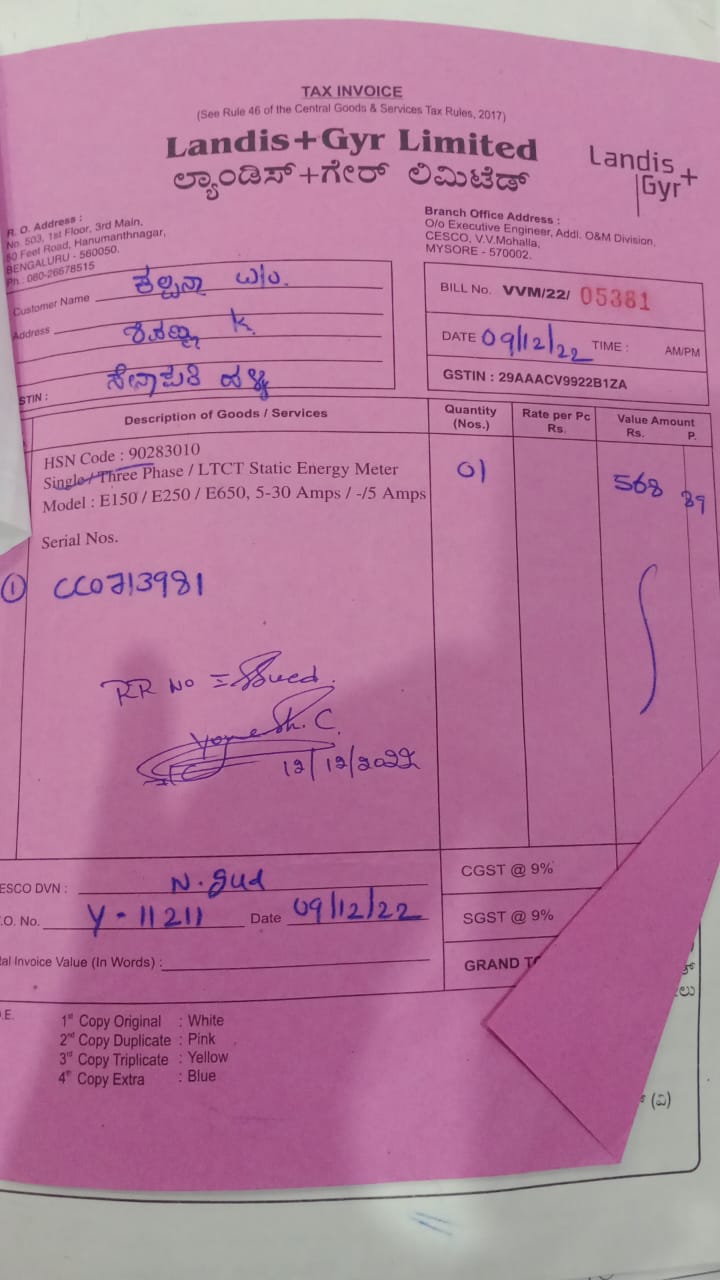 TAX INVOICE
(See Rule 46 of the Central Goods & Services Tax Rules, 2017)
Landis+Gyr Limited
ಲ್ಯಾಂಡಿಸ್+ಗೇರ್ ಲಿಮಿಟೆಡ್
Landis+
Gyr
R. O. Address :
No. 503, 1st Floor, 3rd Main,
60 Feet Road, Hanumanthnagar,
BENGALURU - 560050.
Ph : 080-26678515
Branch Office Address :
O/o Executive Engineer, Addl. O&M Division,
CESCO, V.V.Mohalla,
MYSORE - 570002.
Customer Name ಕಲ್ಪನಾ w/o.
Address K.
STIN :
BILL No. VVM/22/ 05381
DATE 09/12/22 TIME : AM/PM
GSTIN : 29AAACV9922B1ZA
Description of Goods / Services Quantity (Nos.) Rate per Pc Rs. Value Amount Rs. P.
HSN Code : 90283010
Single / Three Phase / LTCT Static Energy Meter 01 568 89
Model : E150 / E250 / E650, 5-30 Amps / -/5 Amps
Serial Nos.
① CC0713981
RR No Issued.
Yogesh. C.
12/12/2022
ESCO DVN : N. gud
.O. No. Y-11211 Date 09/12/22
al Invoice Value (In Words) :
CGST @ 9%
SGST @ 9%
GRAND TO
.E.
1st Copy Original : White
2nd Copy Duplicate : Pink
3rd Copy Triplicate : Yellow
4th Copy Extra : Blue
ಲು
(ವಿ)